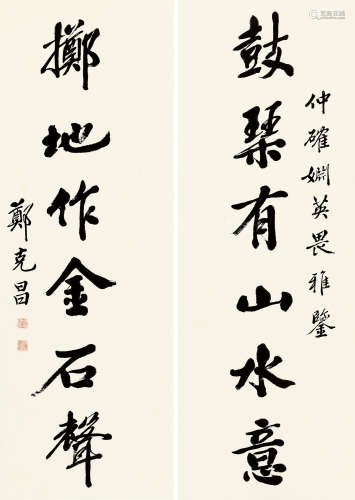 仲確姻英畏雅鑒
鼓琴有山水意
擲地作金石聲
鄭克昌